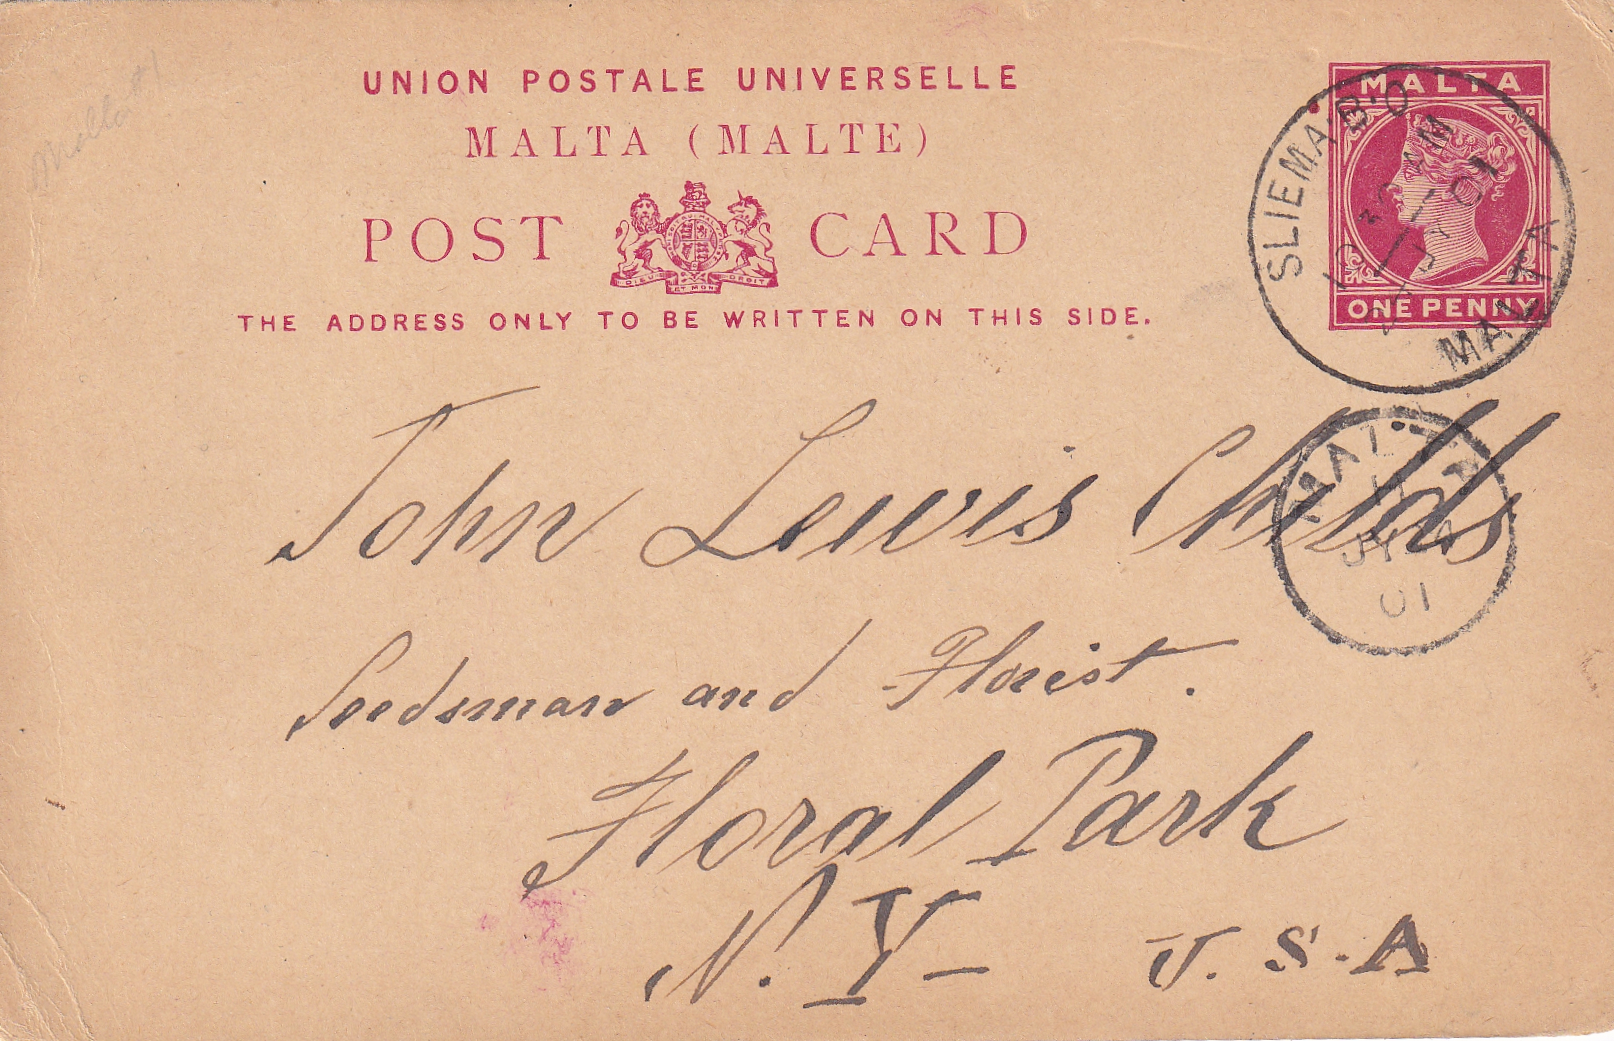 UNION POSTALE UNIVERSELLE
MALTA (MALTE)
POST CARD
DIEU ET MON DROIT
THE ADDRESS ONLY TO BE WRITTEN ON THIS SIDE.
MALTA
ONE PENNY
SLIEMA B.O
01
MALTA
MALTA
JY
01
John Lewis Childs
Seedsman and Florist.
Floral Park
N. Y
U. S. A
Malta #1